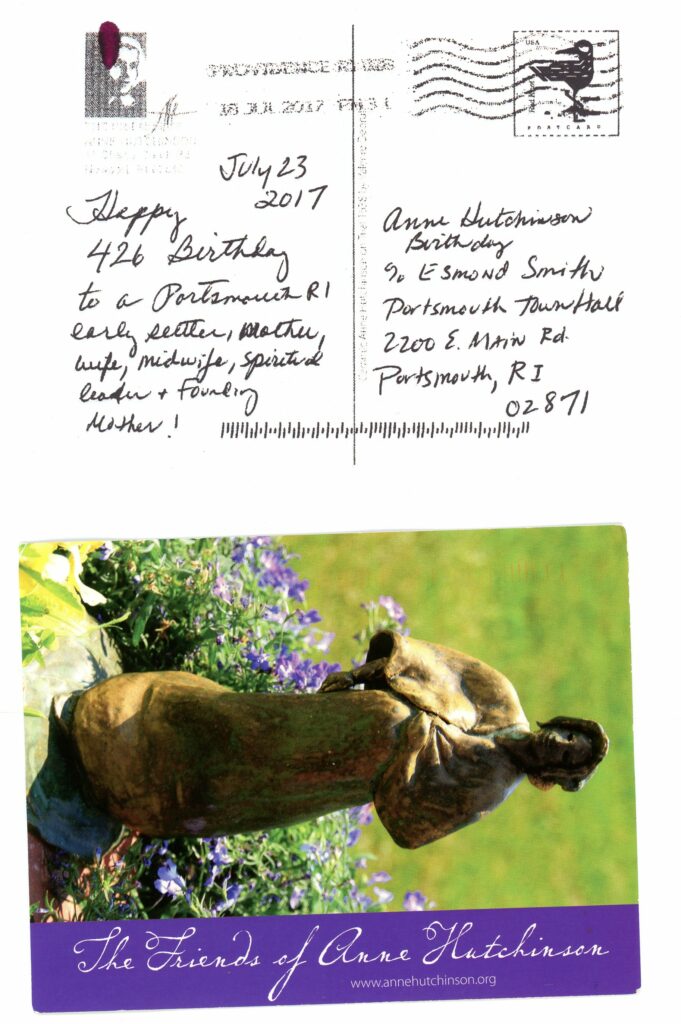 PROVIDENCE RI 028
18 JUL 2017 PM 3 L
USA
POSTCARD
July 23
2017
Happy
426 Birthday
to a Portsmouth RI
early settler, Mother,
wife, midwife, spiritual
leader + Founding
Mother!
Anne Hutchinson
Birthday
c/o Esmond Smith
Portsmouth Town Hall
2200 E. Main Rd.
Portsmouth, RI
02871
The Friends of Anne Hutchinson
www.annehutchinson.org